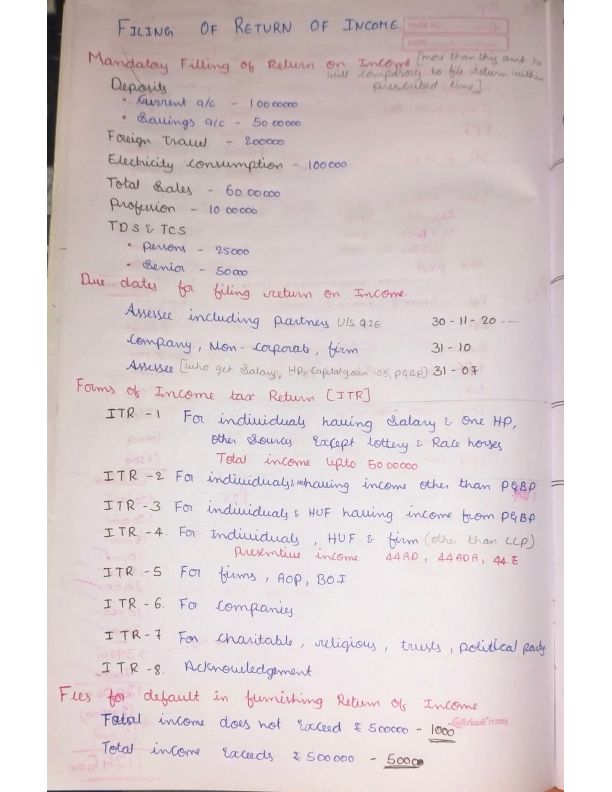 FILING OF RETURN OF INCOME
PAGE NO
DATE
Mandatory Filling of Return on Income [more than this amt he
will compalsory to file return within
prescribed time]
Deposits
• Current a/c - 10000000
• Savings a/c - 5000000
Foreign Travel - 200000
Electricity consumption - 100000
Total Sales - 6000000
Profession - 1000000
TDS & TCS
• persons - 25000
• Senior - 50000
Due dates for filing return on Income
Assessee including partners U/S 92E 30-11-20--
Company, Non-corporate, firm 31-10
Assessee [who get Salary, HP, Capital gain, OS, PGBP] 31-07
Forms of Income tax Return [ITR]
ITR-1 For individuals having Salary & one HP,
other Sources Except lottery & Race horses
Total income upto 5000000
ITR-2 For individuals having income other than PGBP
ITR-3 For individuals & HUF having income from PGBP
ITR-4. For Individuals, HUF & firm (other than LLP)
Presemtive income 44AD, 44ADA, 44E
ITR-5 For firms, AOP, BOI
ITR-6. For companies
ITR-7 For charitable, religious, trusts, political party
ITR-8. Acknowledgement.
Fees for default in furnishing Return of Income
Total income does not exceed ₹ 500000 - 1000
Total income Exceeds ₹ 500000 - 5000